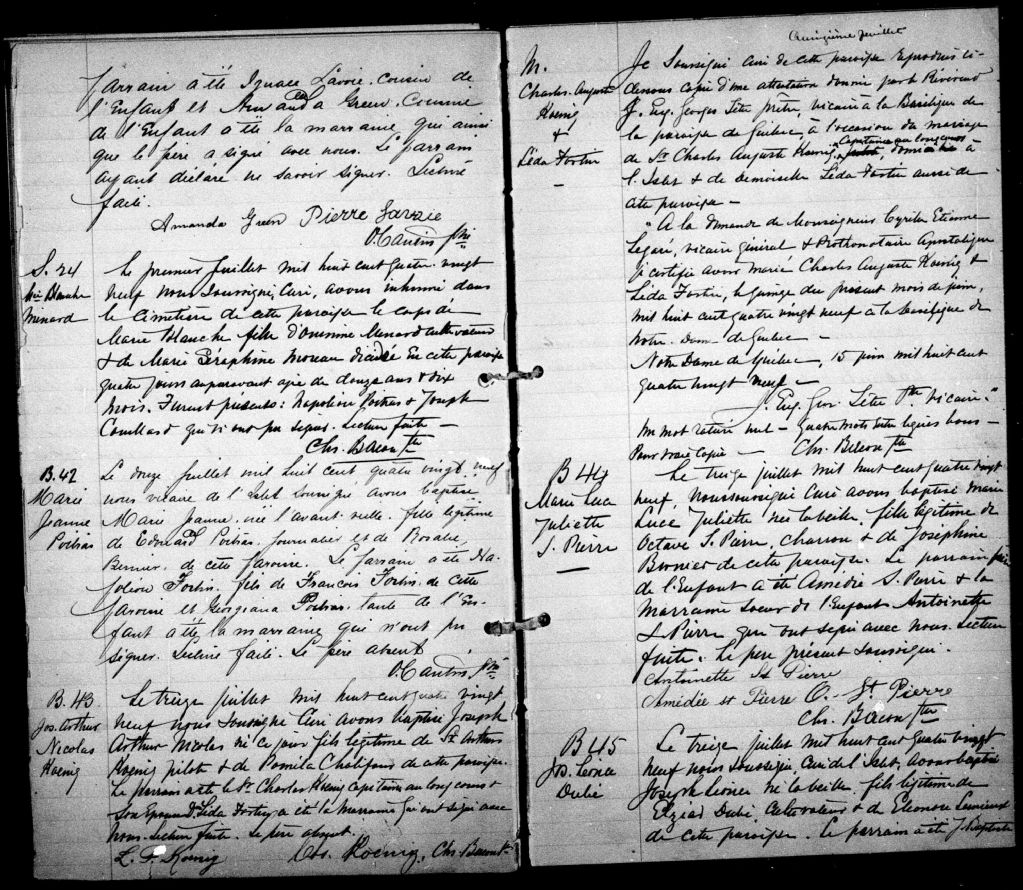 Parrain a été Ignace Lavoie cousin de
l'Enfant et Amanda Green. Cousine
de l'Enfant a été la marraine qui ainsi
que le père a signé avec nous. Le parrain
ayant déclaré ne savoir signer. Lecture
faite.
Amanda Green Pierre
S. 24
Blanche
Menard
Le premier Juillet mil huit cent quatre vingt
neuf nous Soussigné, Curé, avons inhumé dans
le Cimetière de cette paroisse le corps de
Marie Blanche fille d'Onésime Menard cultivateur
& de Marie Séraphine décédée en cette paroisse
quatre jours auparavant agée de douze ans & dix
mois. Furent présents: Napoléon Poitras & Joseph
Couillard qui n'ont pu signer. Lecture faite —
Chs. Bacon Ptre
B. 42
Marie
Jeanne
Poitras
Le douze Juillet mil huit cent quatre vingt neuf
nous vicaire de l'Islet soussigné avons baptisé
Marie Jeanne née l'avant-veille fille légitime
de Edouard Poitras Journalier et de Rosalie
Bernier de cette paroisse. Le parrain a été Na-
poléon Fortin fils de François Fortin de cette
paroisse et Georgiana Poitras tante de l'En-
fant a été la marraine qui n'ont pu
signer. Lecture faite. Le père absent
B. 43
Jos. Arthur
Nicolas
Koenig
Le treize juillet mil huit cent quatre vingt
neuf nous Soussigné Curé avons baptisé Joseph
Arthur Nicolas né ce jour fils légitime de Sr. Arthur
Koenig pilote & de Chalifour de cette paroisse.
Le parrain a été le Sr. Charles Koenig capitaine au long cours &
Son Epouse De Léda Fortin a été la Marraine qui ont signé avec
nous. Lecture faite. Le père absent.
L. F. Koenig Chs. Koenig, Chs. Bacon Ptre
Quinzième Juillet
M.
Charles Auguste
Koenig
&
Léda Fortin
—
Je Soussigné Curé de cette paroisse reproduis ci-
dessous copie d'une attestation donnée par le Révérend
J. Eug. Georges Têtu prêtre, vicaire à la Basilique de
la paroisse de Québec, à l'occasion du mariage
Capitaine au long cours
de Sr Charles Auguste Koenig, domicilié à
l'Islet & de Demoiselle Léda Fortin aussi de
cette paroisse —
"A la demande de Monseigneur Cyrille Etienne
Legaré, vicaire général & Protonotaire Apostolique
je certifie avoir marié Charles Auguste Koenig &
Léda Fortin, le quinze du présent mois de juin,
mil huit cent quatre vingt neuf à la basilique de
Notre-Dame de Québec —
Notre Dame de Québec, 15 juin mil huit cent
quatre vingt neuf —
J. Eug. Geo. Têtu Ptre Vicaire"
un mot raturé nul — Quatre mots entre lignes bons —
Pour vraie copie — Chs. Bacon Ptre
B 44
Marie Luce
Juliette
S. Pierre
—
Le treize juillet mil huit cent quatre vingt
neuf, nous soussigné Curé avons baptisé Marie
Luce Juliette née la veille, fille légitime de
Octave S. Pierre, charron & de Joséphine
Bernier de cette paroisse. Le parrain frère
de l'Enfant a été Amédée S. Pierre & la
Marraine Soeur de l'Enfant Antoinette
S. Pierre qui ont signé avec nous. Lecture
faite. Le père présent soussigné.
Antoinette St Pierre
Amédée St Pierre O. St. Pierre
Chs. Bacon Ptre
B 45
Jos. Léonce
Dubé
Le treize juillet mil huit cent quatre vingt
neuf nous soussigné, Curé de l'Islet, avons baptisé
Joseph Léonce né la veille fils légitime de
Elzéar Dubé, Cultivateur & de Eléonore Lemieux
de cette paroisse. Le parrain a été J. Baptiste